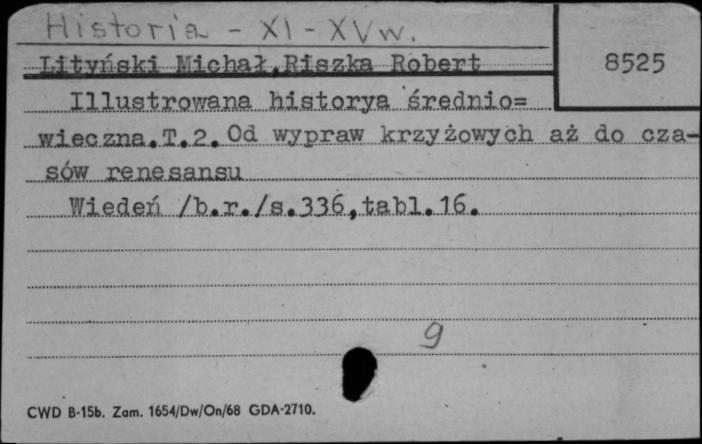 Historia - XI - XV w.
Lityński Michał,Riszka Robert
8525
Illustrowana historya średnio=
wieczna.T.2.Od wypraw krzyżowych aż do cza-
sów renesansu
Wiedeń /b.r./s.336,tabl.16.
9
CWD B-15b. Zam. 1654/Dw/On/68 GDA-2710.